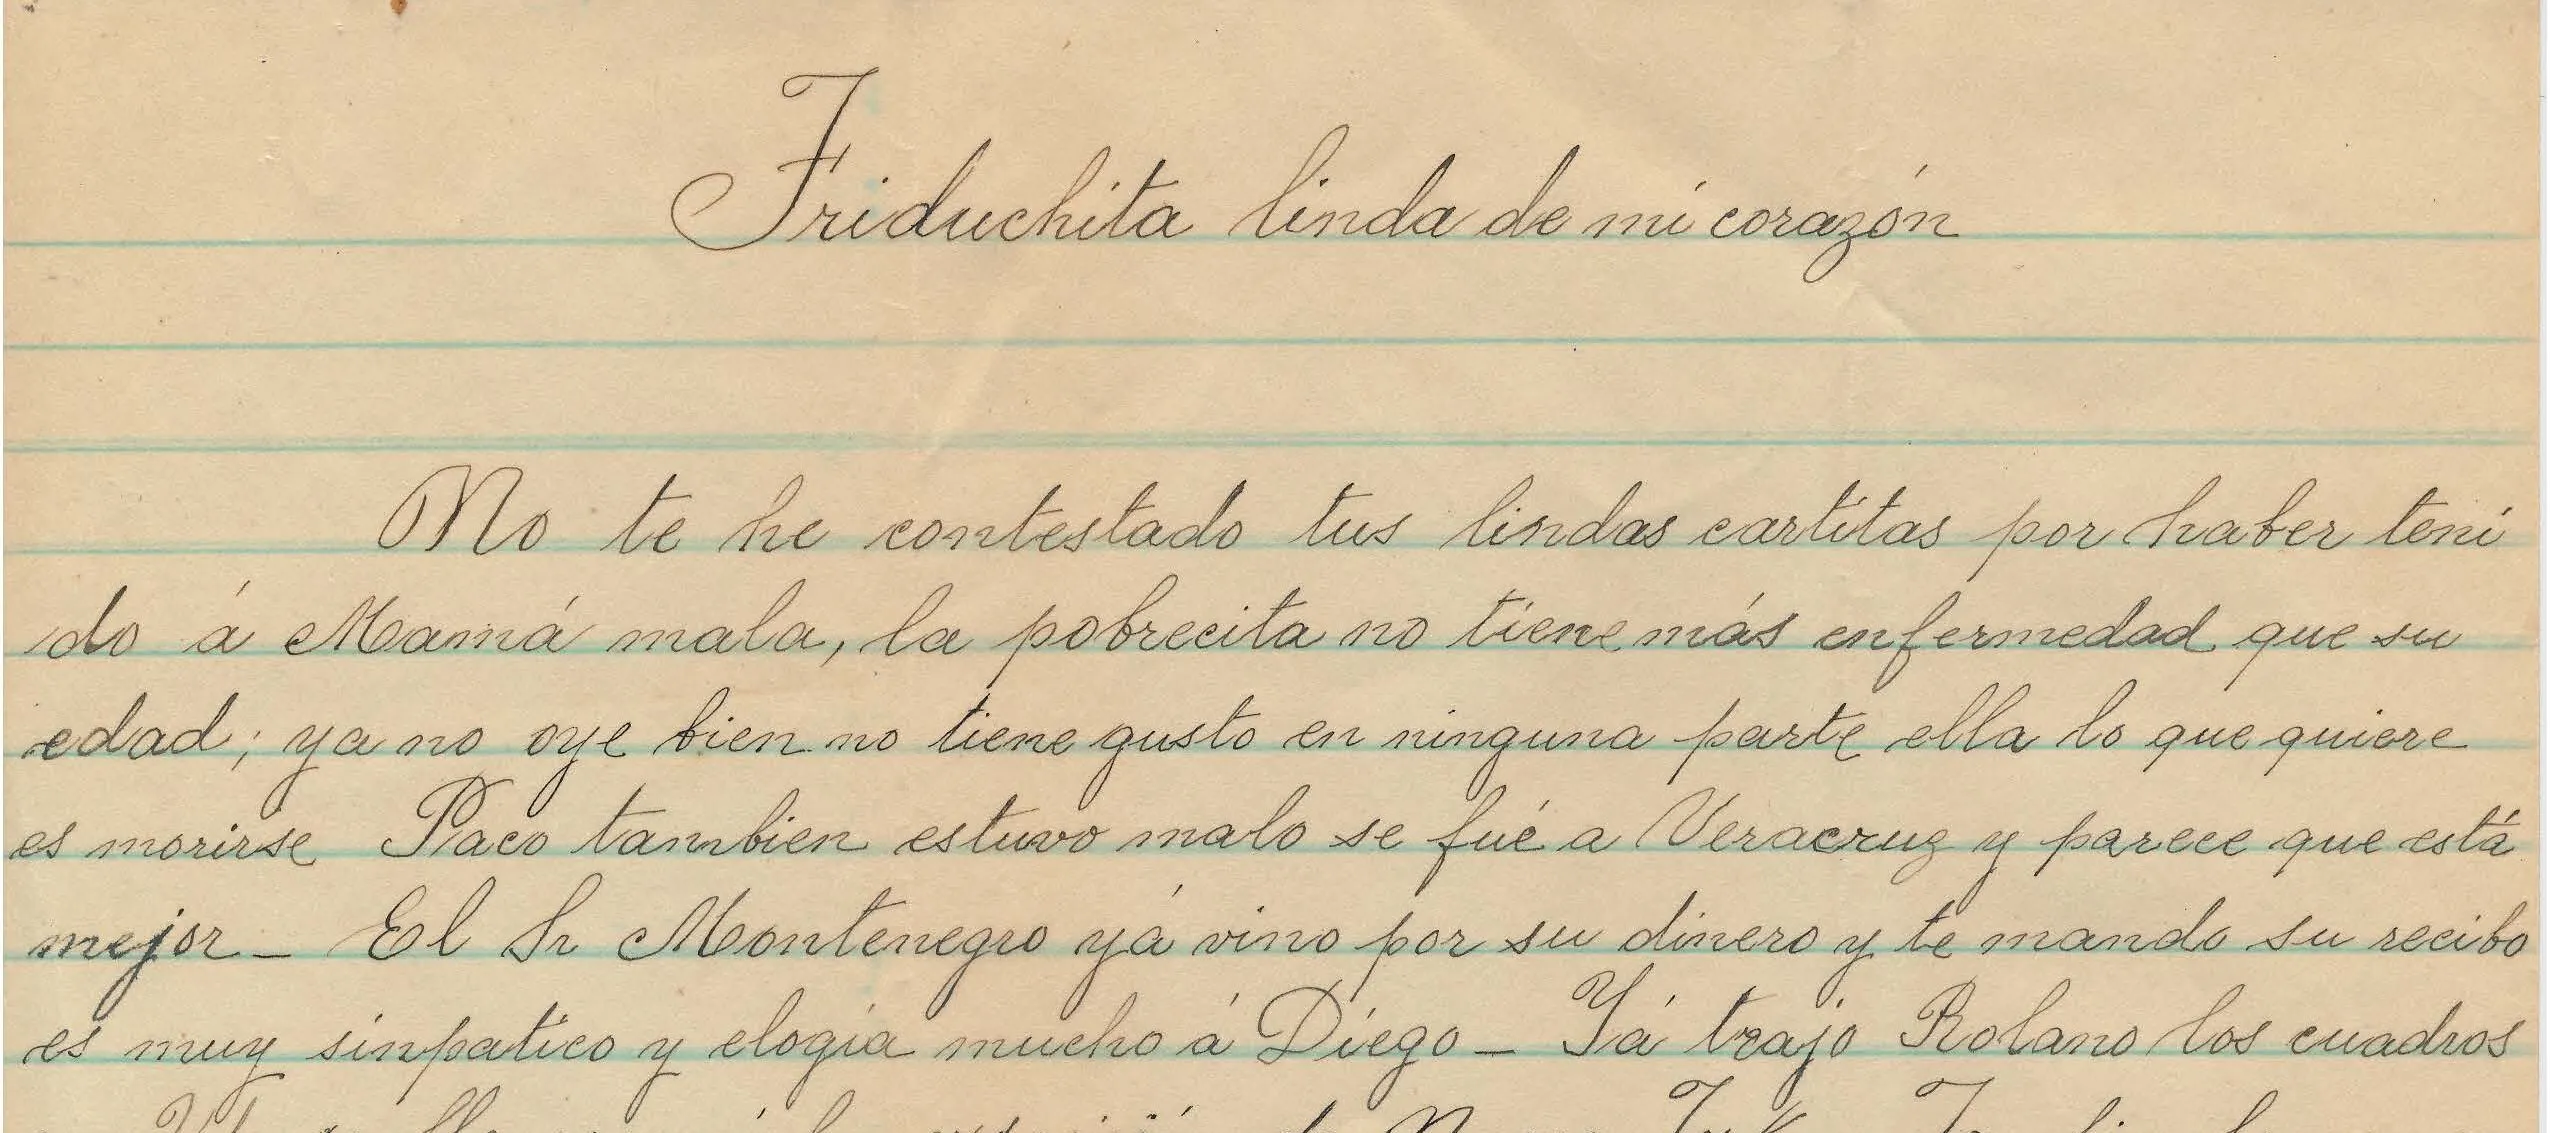 Friduchita linda de mi corazón
No te he contestado tus lindas cartitas por haber teni
do á Mamá mala, la pobrecita no tiene más enfermedad que su
edad; ya no oye bien no tiene gusto en ninguna parte ella lo que quiere
es morirse Paco tambien estuvo malo se fué a Veracruz y parece que está
mejor – El Sr Montenegro yá vino por su dinero y te mando su recibo
es muy sinpatico y elogia mucho á Diego – Yá trajo Rolano los cuadros